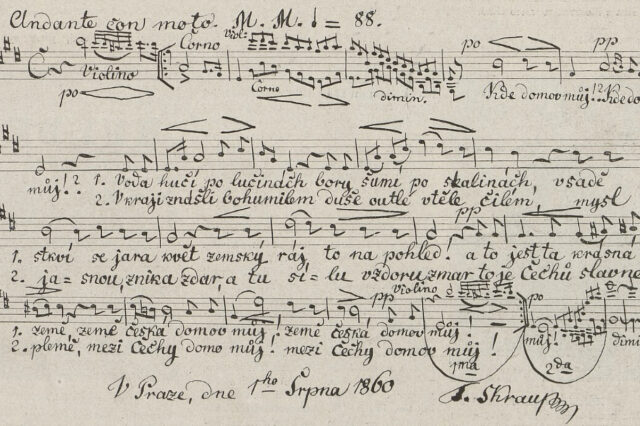 Andante con moto. M. M. ♩ = 88.
Corno Viol: po pp
Violino
po Corno dimin. Kde domov můj!? Kde do
můj!? 1. Voda hučí po lučinách bory šumí po skalinách, v sadě
2. V kraji znášli bohumilém duše outlé v těle čilém, mysl
pp
1. stkví se jara květ zemský ráj to na pohled! a to jest ta krásná
2. ja=snou, znik a zdar, a tu sí=lu vzdoru zmar to je Čechů slavné
pp Violino po
1. země, země česká domov můj, země česká domov můj! můj! dimi
2. plemě, mezi Čechy domo můj! mezi Čechy domov můj!
1ma 2da
V Praze, dne 1ho Srpna 1860 F. Skraup